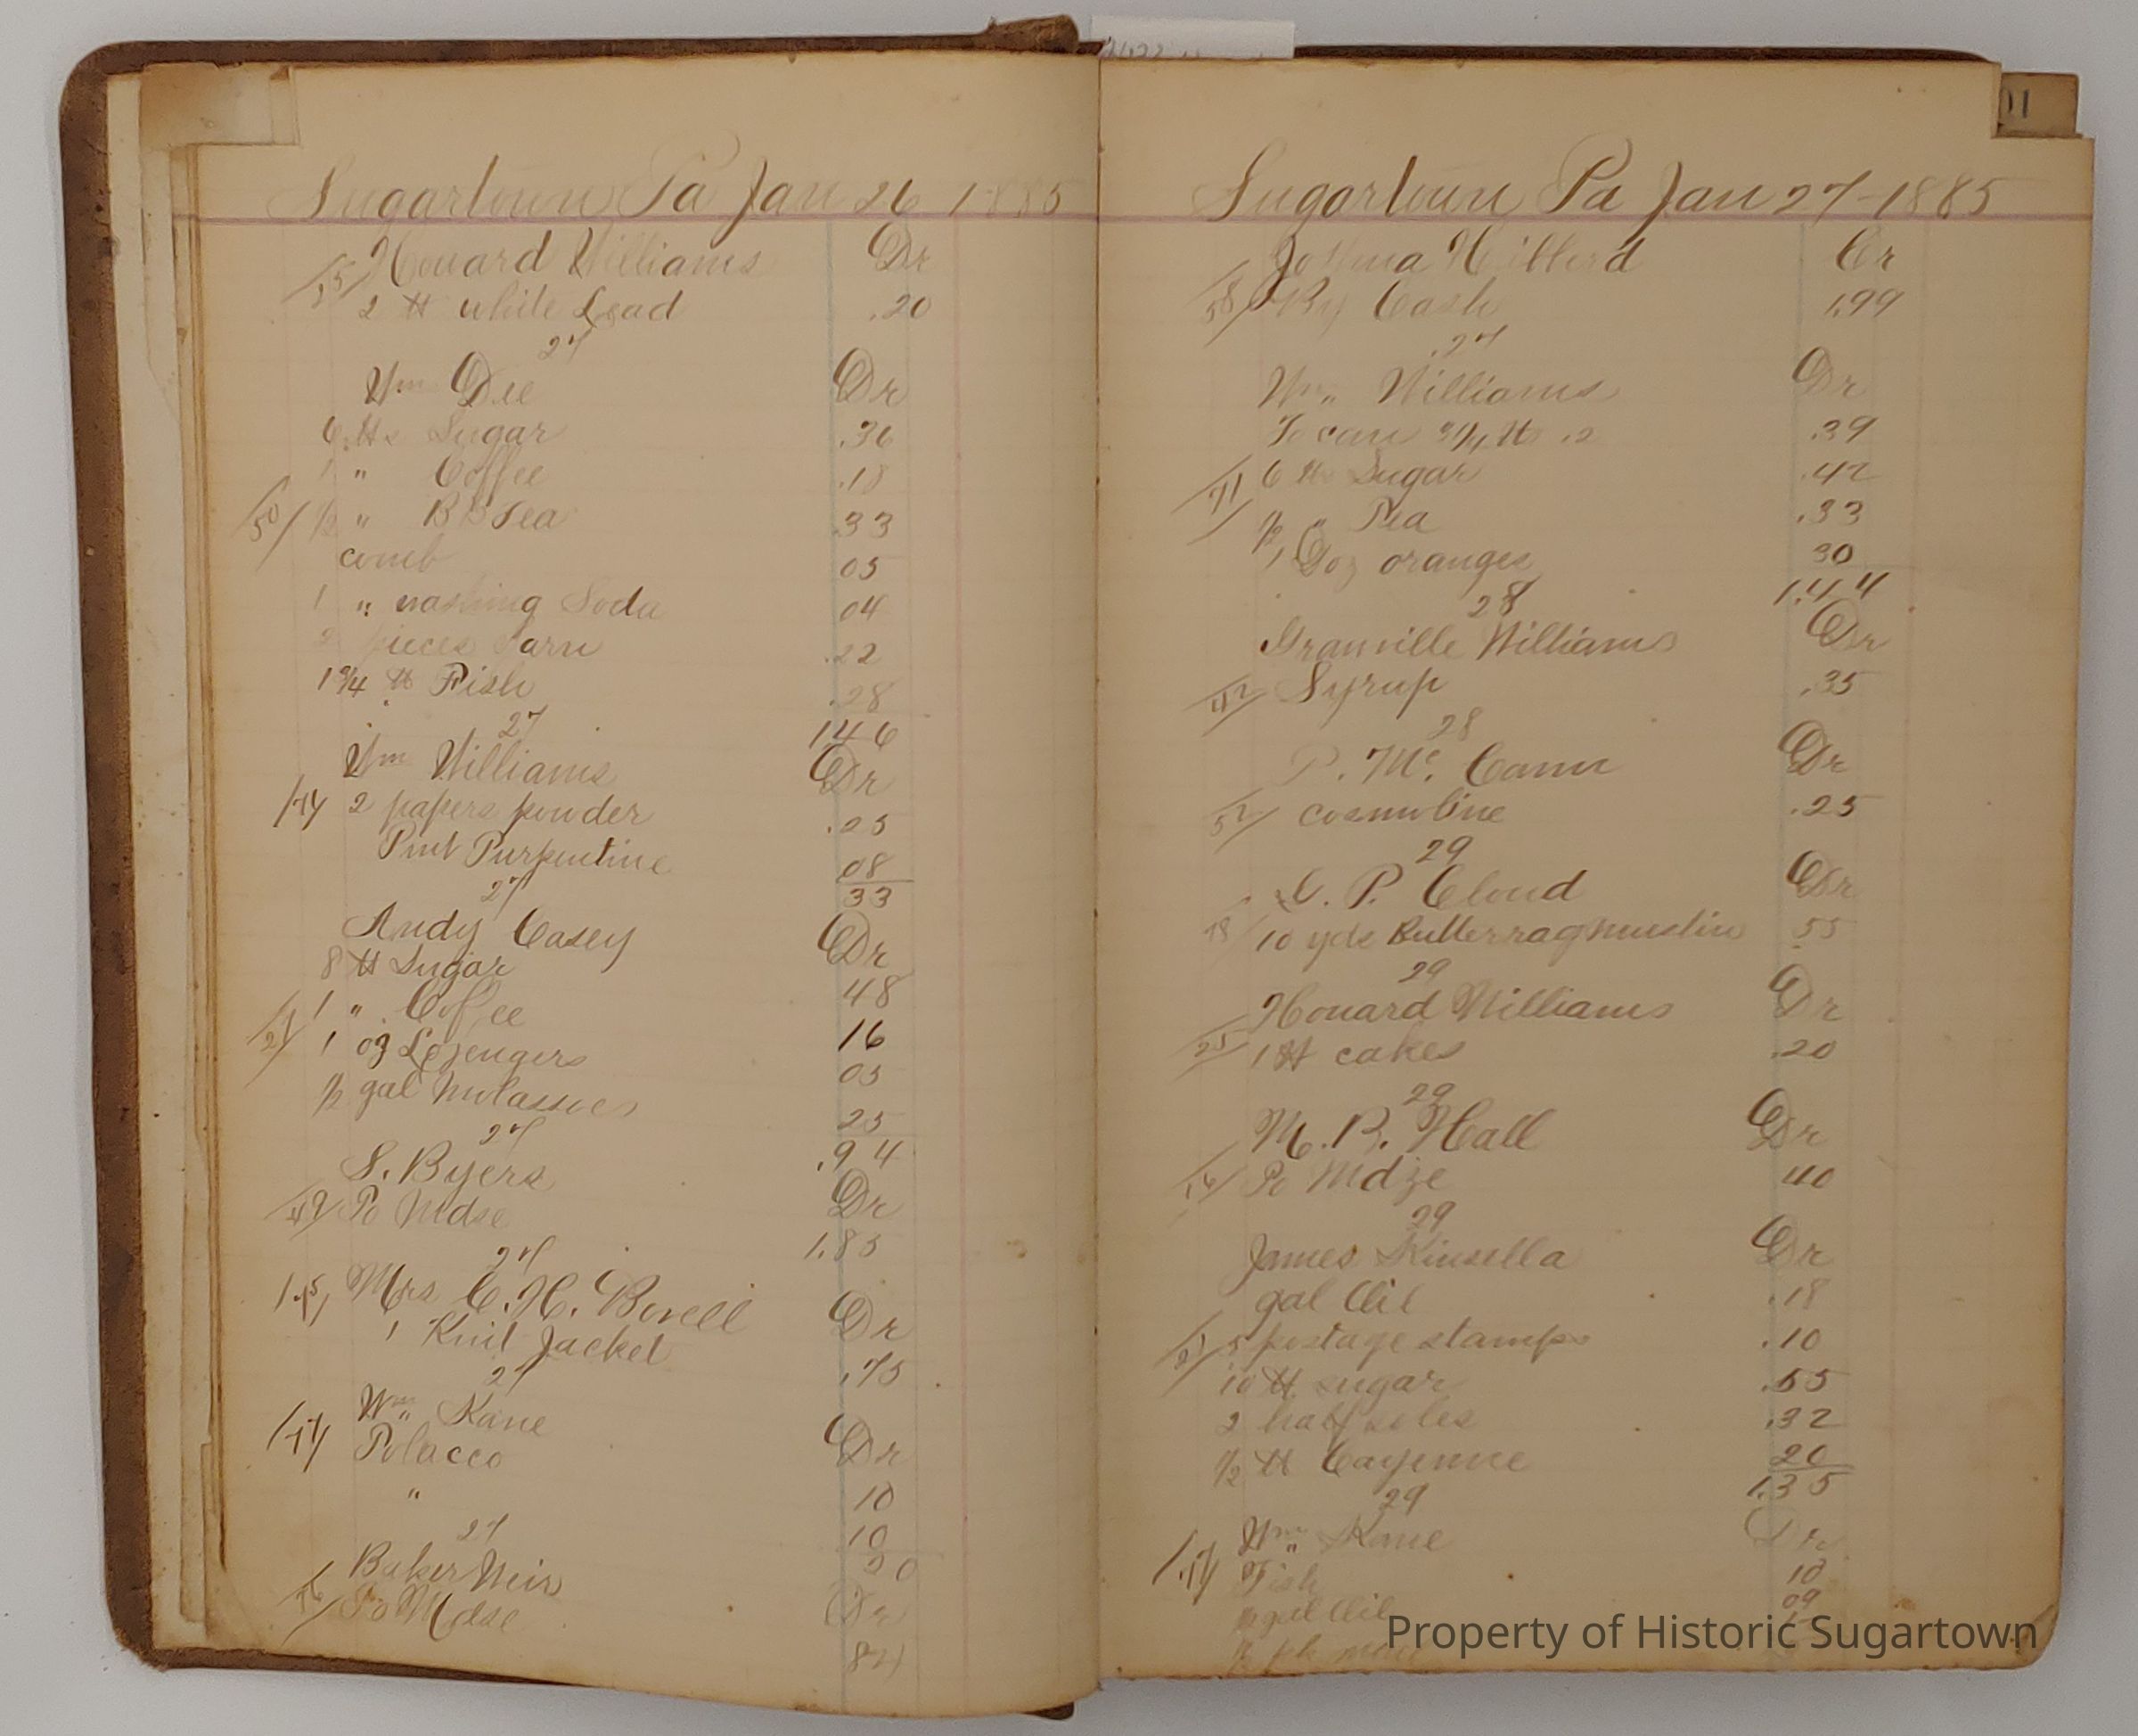 01
Sugartown Pa Jan 26 1885
Howard Williams Dr
55/ 2 ℔ white Lead .20
27
Wm Dee Dr
6 ℔s Sugar .36
1 " Coffee .18
50/ 1/2 " BB Tea .33
comb 05
1 " washing Soda 04
2 pieces Yarn .22
1 3/4 ℔ Fish .28
1.46
27
Wm Williams Dr
/74 2 papers powder .25
Pint Turpentine 08
33
27
Andy Casey Dr
8 ℔ Sugar 48
1 " Coffee 16
1 oz Lozengers 05
1/2 gal Molasses 25
.94
27
S. Byers Dr
49/ To Mdse 1.85
27
Mrs C. H. Dr
1 Knit Jacket .75
27
Wm Kane Dr
/17/ Tobacco 10
" 10
20
27
Baker Weir Dr
To Mdse
Sugartown Pa Jan 27-1885
Joshua Cr
58/ By Cash 1.99
27
Wm Williams Dr
To can 3 1/4 ℔ .12 .39
71/ 6 ℔ Sugar .42
1/2 " Tea .33
1 Doz oranges 30
1.44
28
Granville Williams Dr
Syrup .35
28
P. Mc. Cann Dr
52/ cosmoline .25
29
P. Cloud Dr
10 yds Butterragmuslin 55
29
Howard Williams Dr
55/ 1 ℔ cakes .20
29
M. B. Hall Dr
To Mdze 40
29
James Kinsella Dr
gal Oil .18
5 postage stamps .10
10 ℔ sugar .55
2 half soles .32
1/2 ℔ Cayenne 20
1.35
29
Wm Kane Dr
/17/ Fish 10
gal Oil 09
Property of Historic Sugartown